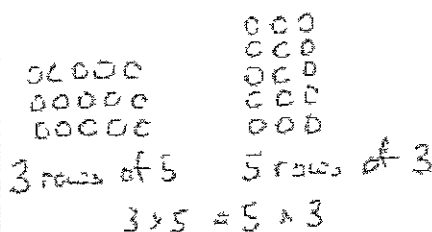 3 rows of 5
5 rows of 3
3 × 5 = 5 × 3